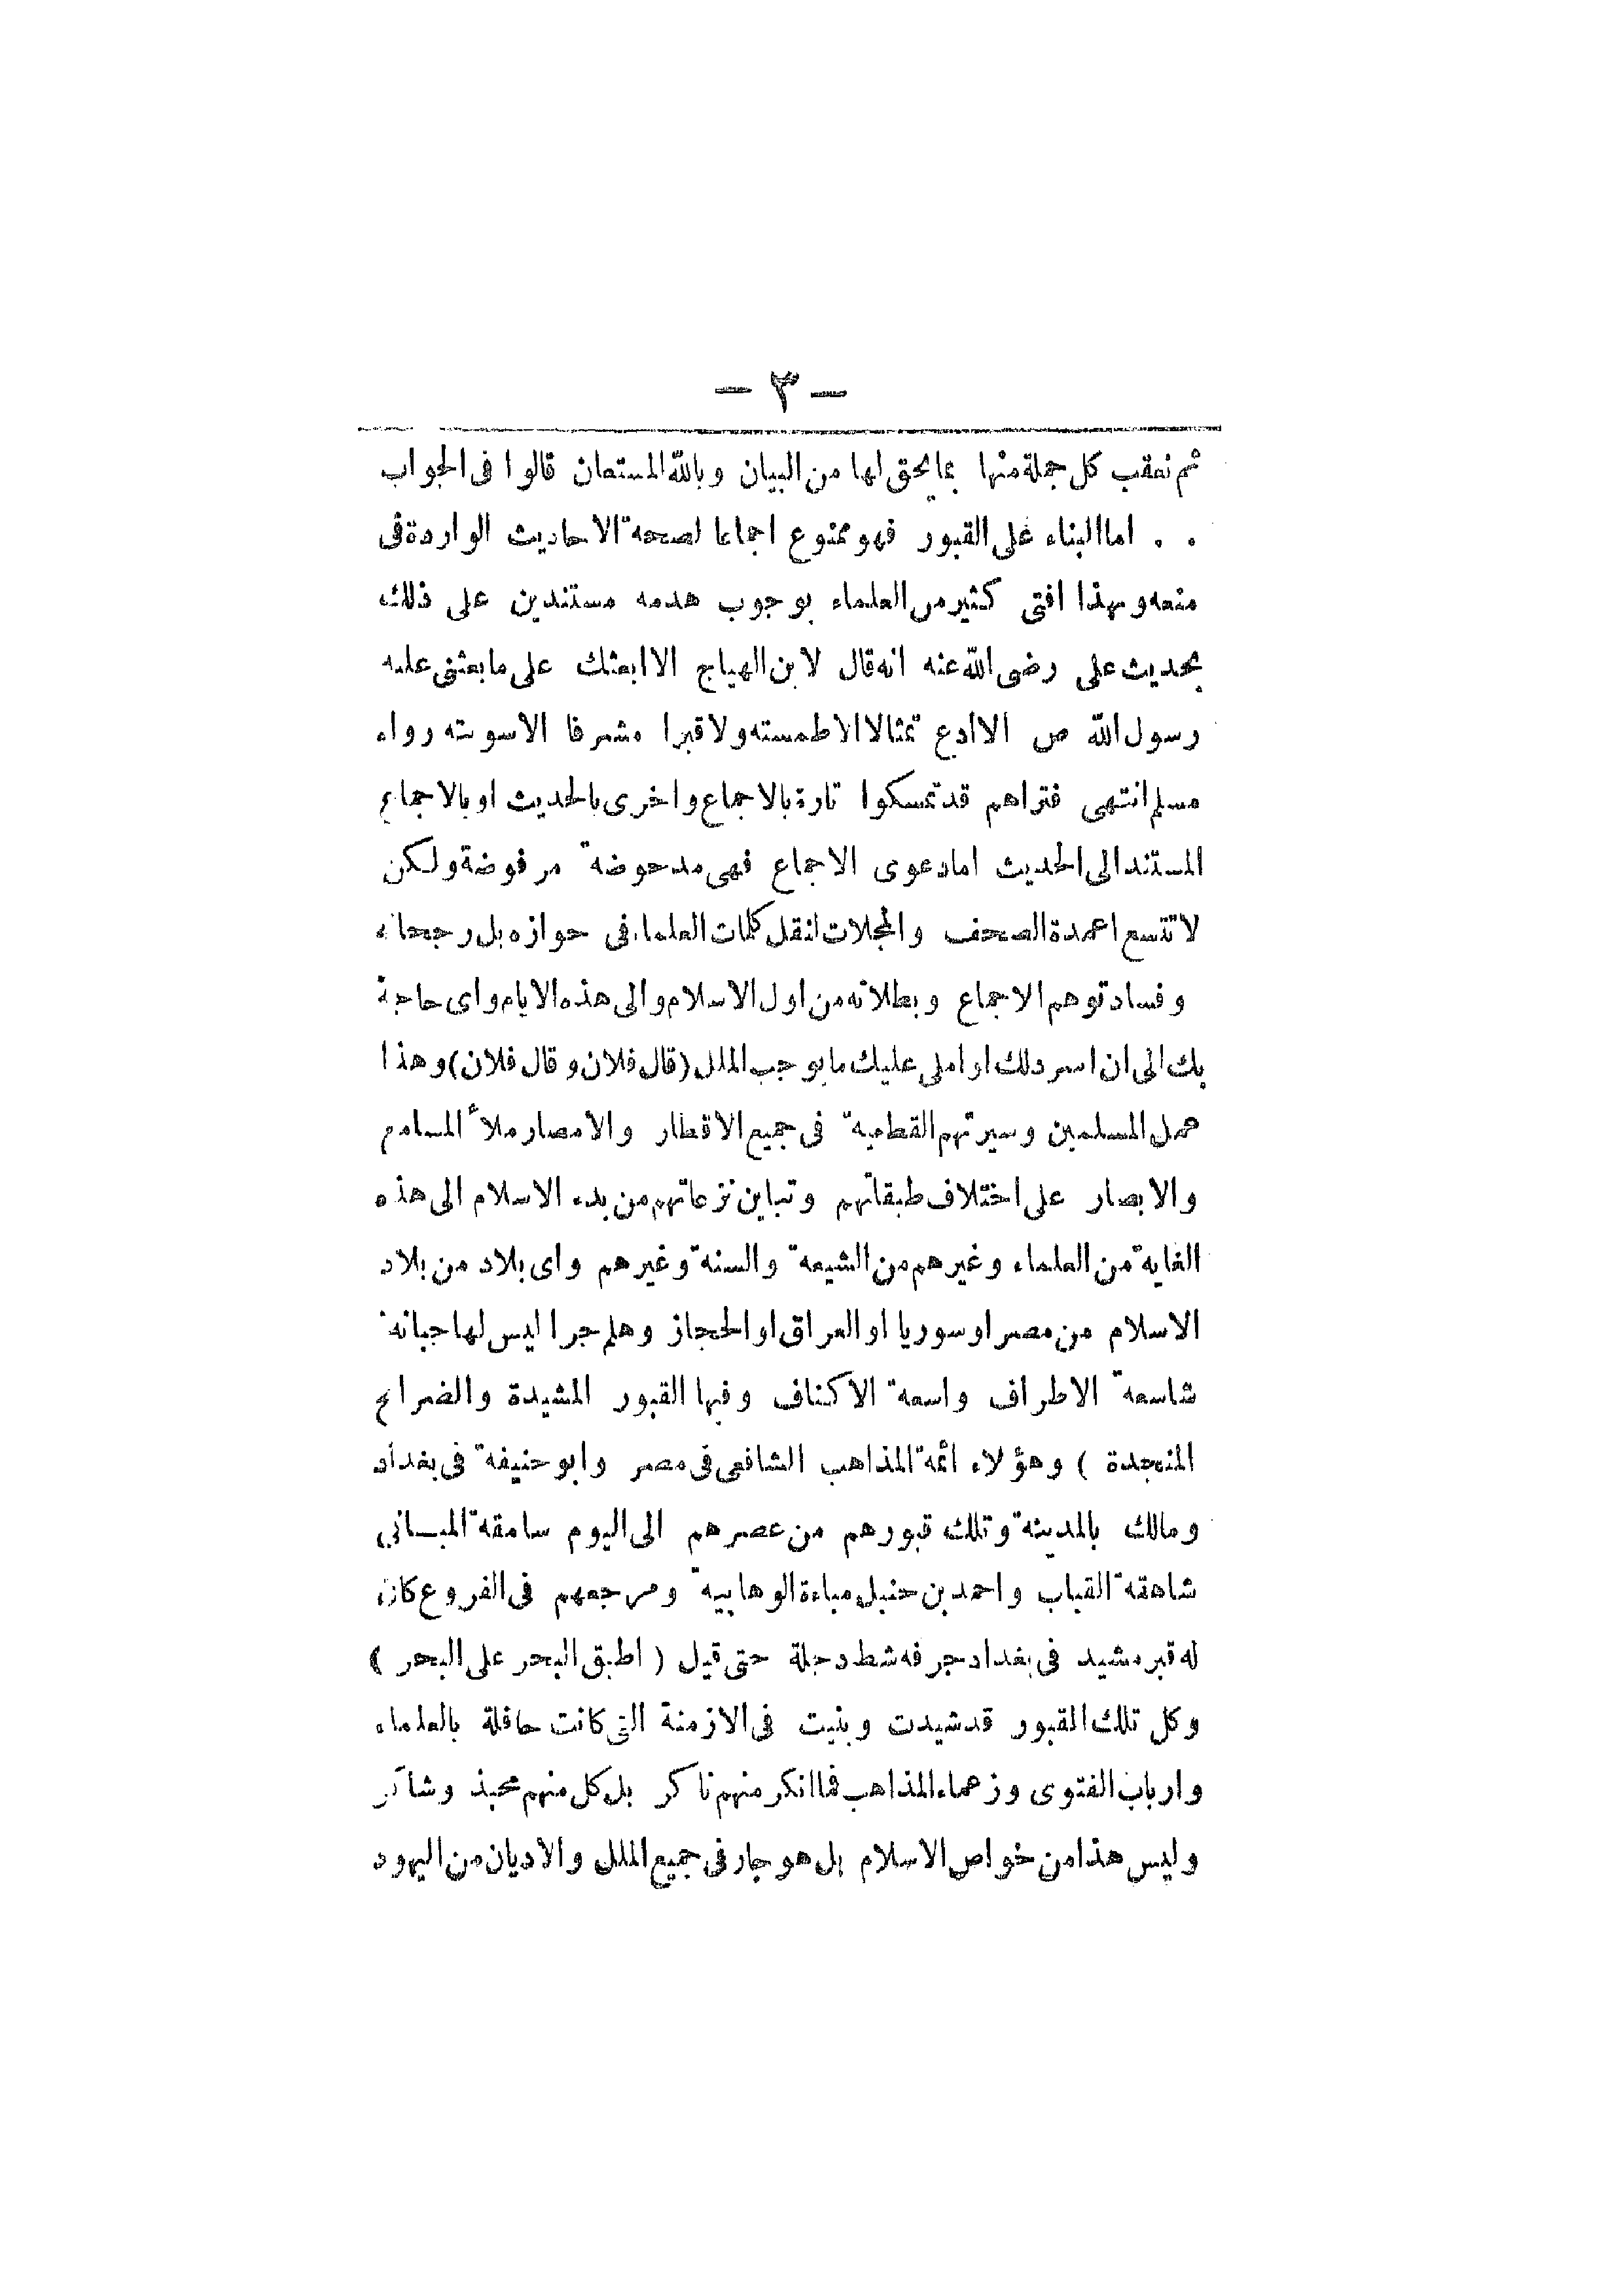 — ٣ —
ثم نعقب كل جملة منها بما يحق لها من البيان وبالله المستعان قالوا فى الجواب
. . اما البناء على القبور فهو ممنوع اجماعا لصحة الاحاديث الواردة فى
منعه وبهذا افتى كثير من العلماء بوجوب هدمه مستندين على ذلك
بحديث على رضى الله عنه انه قال لابن الهياج الا ابعثك على ما بعثنى عليه
رسول الله ص الا ادع تمثالا الا طمسته ولا قبرا مشرفا الا سويته رواه
مسلم انتهى فتراهم قد تمسكوا تارة بالاجماع واخرى بالحديث او بالاجماع
المستند الى الحديث اما دعوى الاجماع فهى مدحوضة مرفوضة ولكن
لا تتسع اعمدة الصحف والمجلات لنقل كلمات العلماء فى جوازه بل رجحانه
وفساد توهم الاجماع وبطلانه من اول الاسلام والى هذه الايام واى حاجة
بك الى ان اسرد لك او املى عليك ما يوجب الملل (قال فلان وقال فلان) وهذا
عمل المسلمين وسيرتهم القطعية فى جميع الاقطار والامصار ملأ المسامع
والابصار على اختلاف طبقاتهم وتباين نزعاتهم من بدء الاسلام الى هذه
الغاية من العلماء وغيرهم من الشيعة والسنة وغيرهم واى بلاد من بلاد
الاسلام من مصر او سوريا او العراق او الحجاز وهلم جرا ليس لها جبانة
شاسعة الاطراف واسعة الاكناف وفيها القبور المشيدة والضرائح
المنجدة ) وهؤلاء ائمة المذاهب الشافعى فى مصر وابو حنيفة فى بغداد
ومالك بالمدينة وتلك قبورهم من عصرهم الى اليوم سامقة المبانى
شاهقة القباب واحمد بن حنبل مباءة الوهابية ومرجعهم فى الفروع كان
له قبر مشيد فى بغداد جرفه شط دجلة حتى قيل ( اطبق البحر على البحر )
وكل تلك القبور قد شيدت وبنيت فى الازمنة التى كانت حافلة بالعلماء
وارباب الفتوى وزعماء المذاهب فما انكر منهم ناكر بل كل منهم محبذ وشاكر
وليس هذا من خواص الاسلام بل هو جار فى جميع الملل والاديان من اليهود